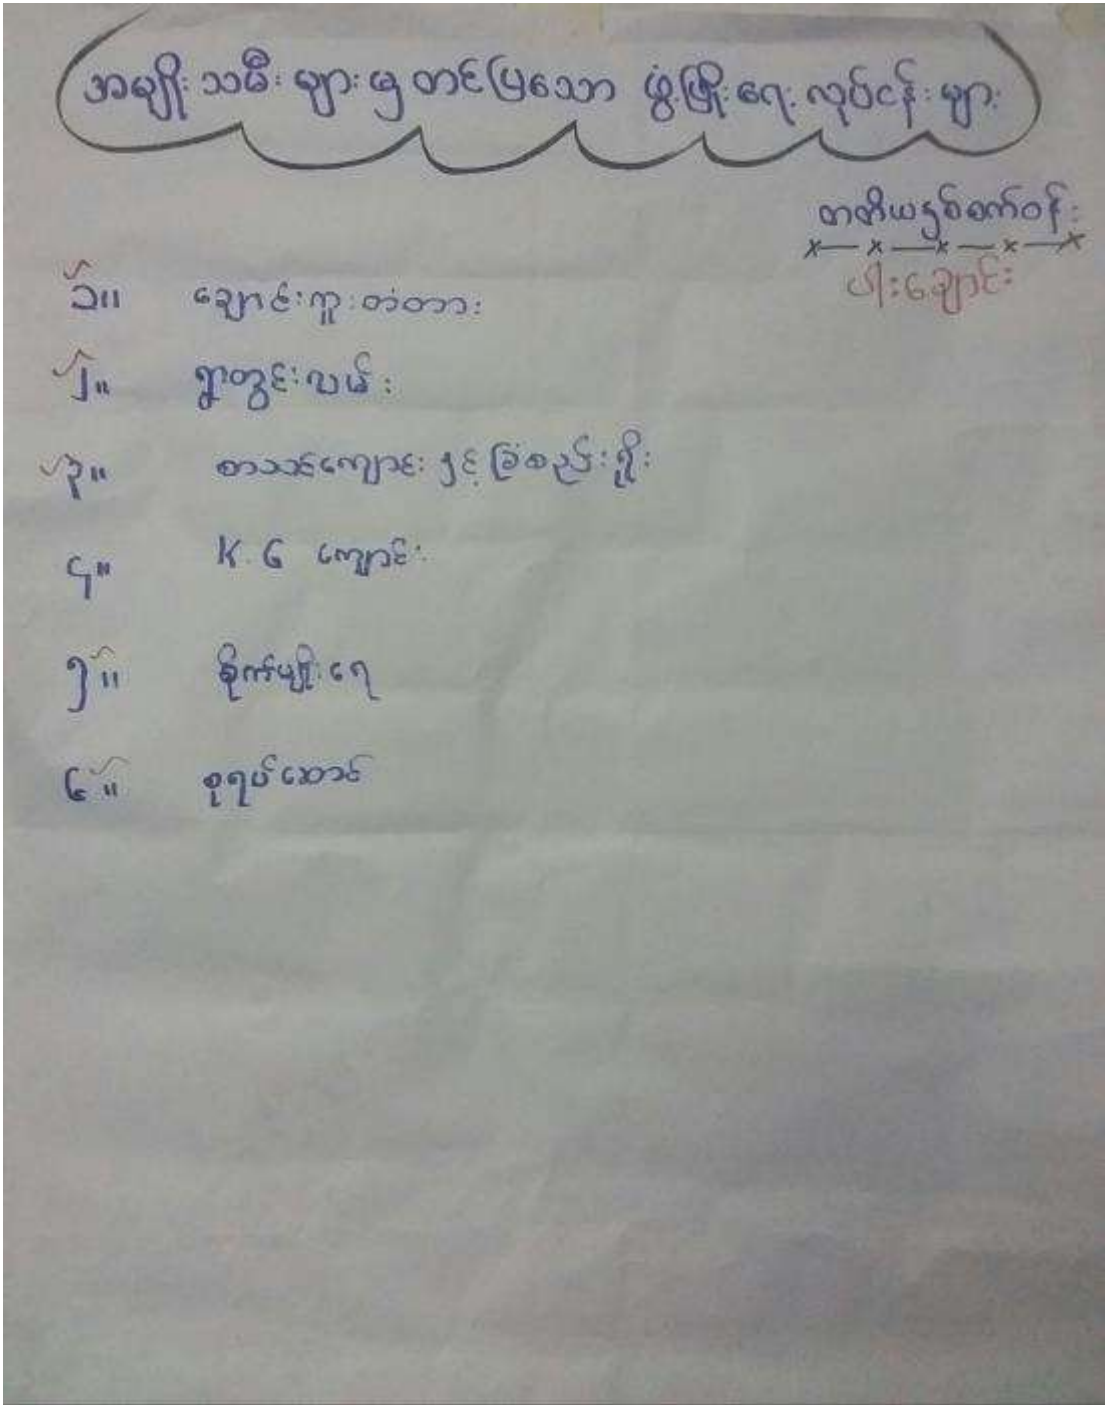 အမျိုးသမီးများမှ တင်ပြသော ဖွံ့ဖြိုးရေးလုပ်ငန်းများ
တတိယနှစ်စက်ဝန်း
ပါးချောင်း
၁။ ချောင်းကူးတံတား
၂။ ရွာတွင်းလမ်း
၃။ စာသင်ကျောင်းနှင့် ခြံစည်းရိုး
၄။ K.G ကျောင်း
၅။ စိုက်ပျိုးရေ
၆။ စုရပ်ဆောင်